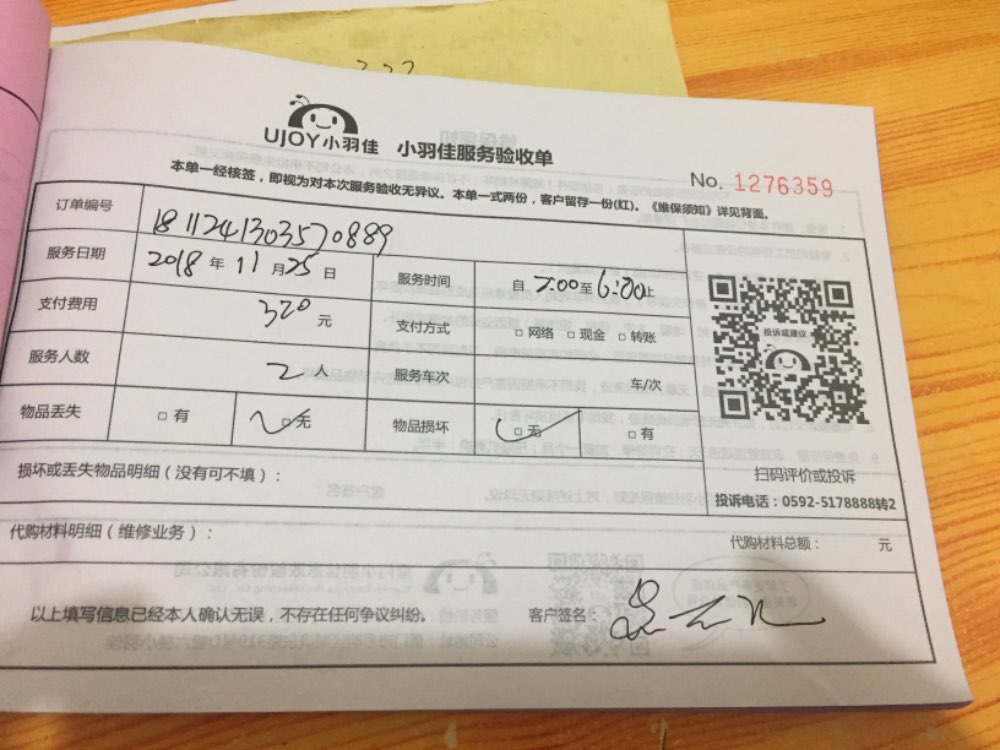 UJOY小羽佳 小羽佳服务验收单
No. 1276359
本单一经核签，即视为对本次服务验收无异议。本单一式两份，客户留存一份(红)。《维保须知》详见背面。
订单编号 1811241303570889
服务日期 2018年11月25日 服务时间 自2:00至6:00止
支付费用 320元 支付方式 □网络 □现金 □转账
服务人数 2人 服务车次 车/次
物品丢失 □有 □无 物品损坏 □无 □有
投诉或建议
扫码评价或投诉
投诉电话：0592-5178888转2
损坏或丢失物品明细（没有可不填）：
代购材料明细（维修业务）： 代购材料总额： 元
以上填写信息已经本人确认无误，不存在任何争议纠纷。 客户签名：